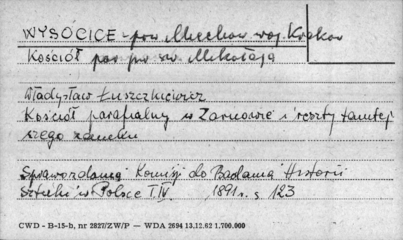 WYSOCICE - pow Miechow woj. Krakow
Kościół par pw św. Mikołaja
Władysław Łuszczkiewicz
Kościół parafialny w Żarnowie i reszty tamtej
szego zamku
Sprawozdania Komisji do Badania Historii
Sztuki w Polsce T. IV 1891 r. s 123
CWD - B-15-b, nr 2827/ZW/P — WDA 2694 13.12.62 1.700.000